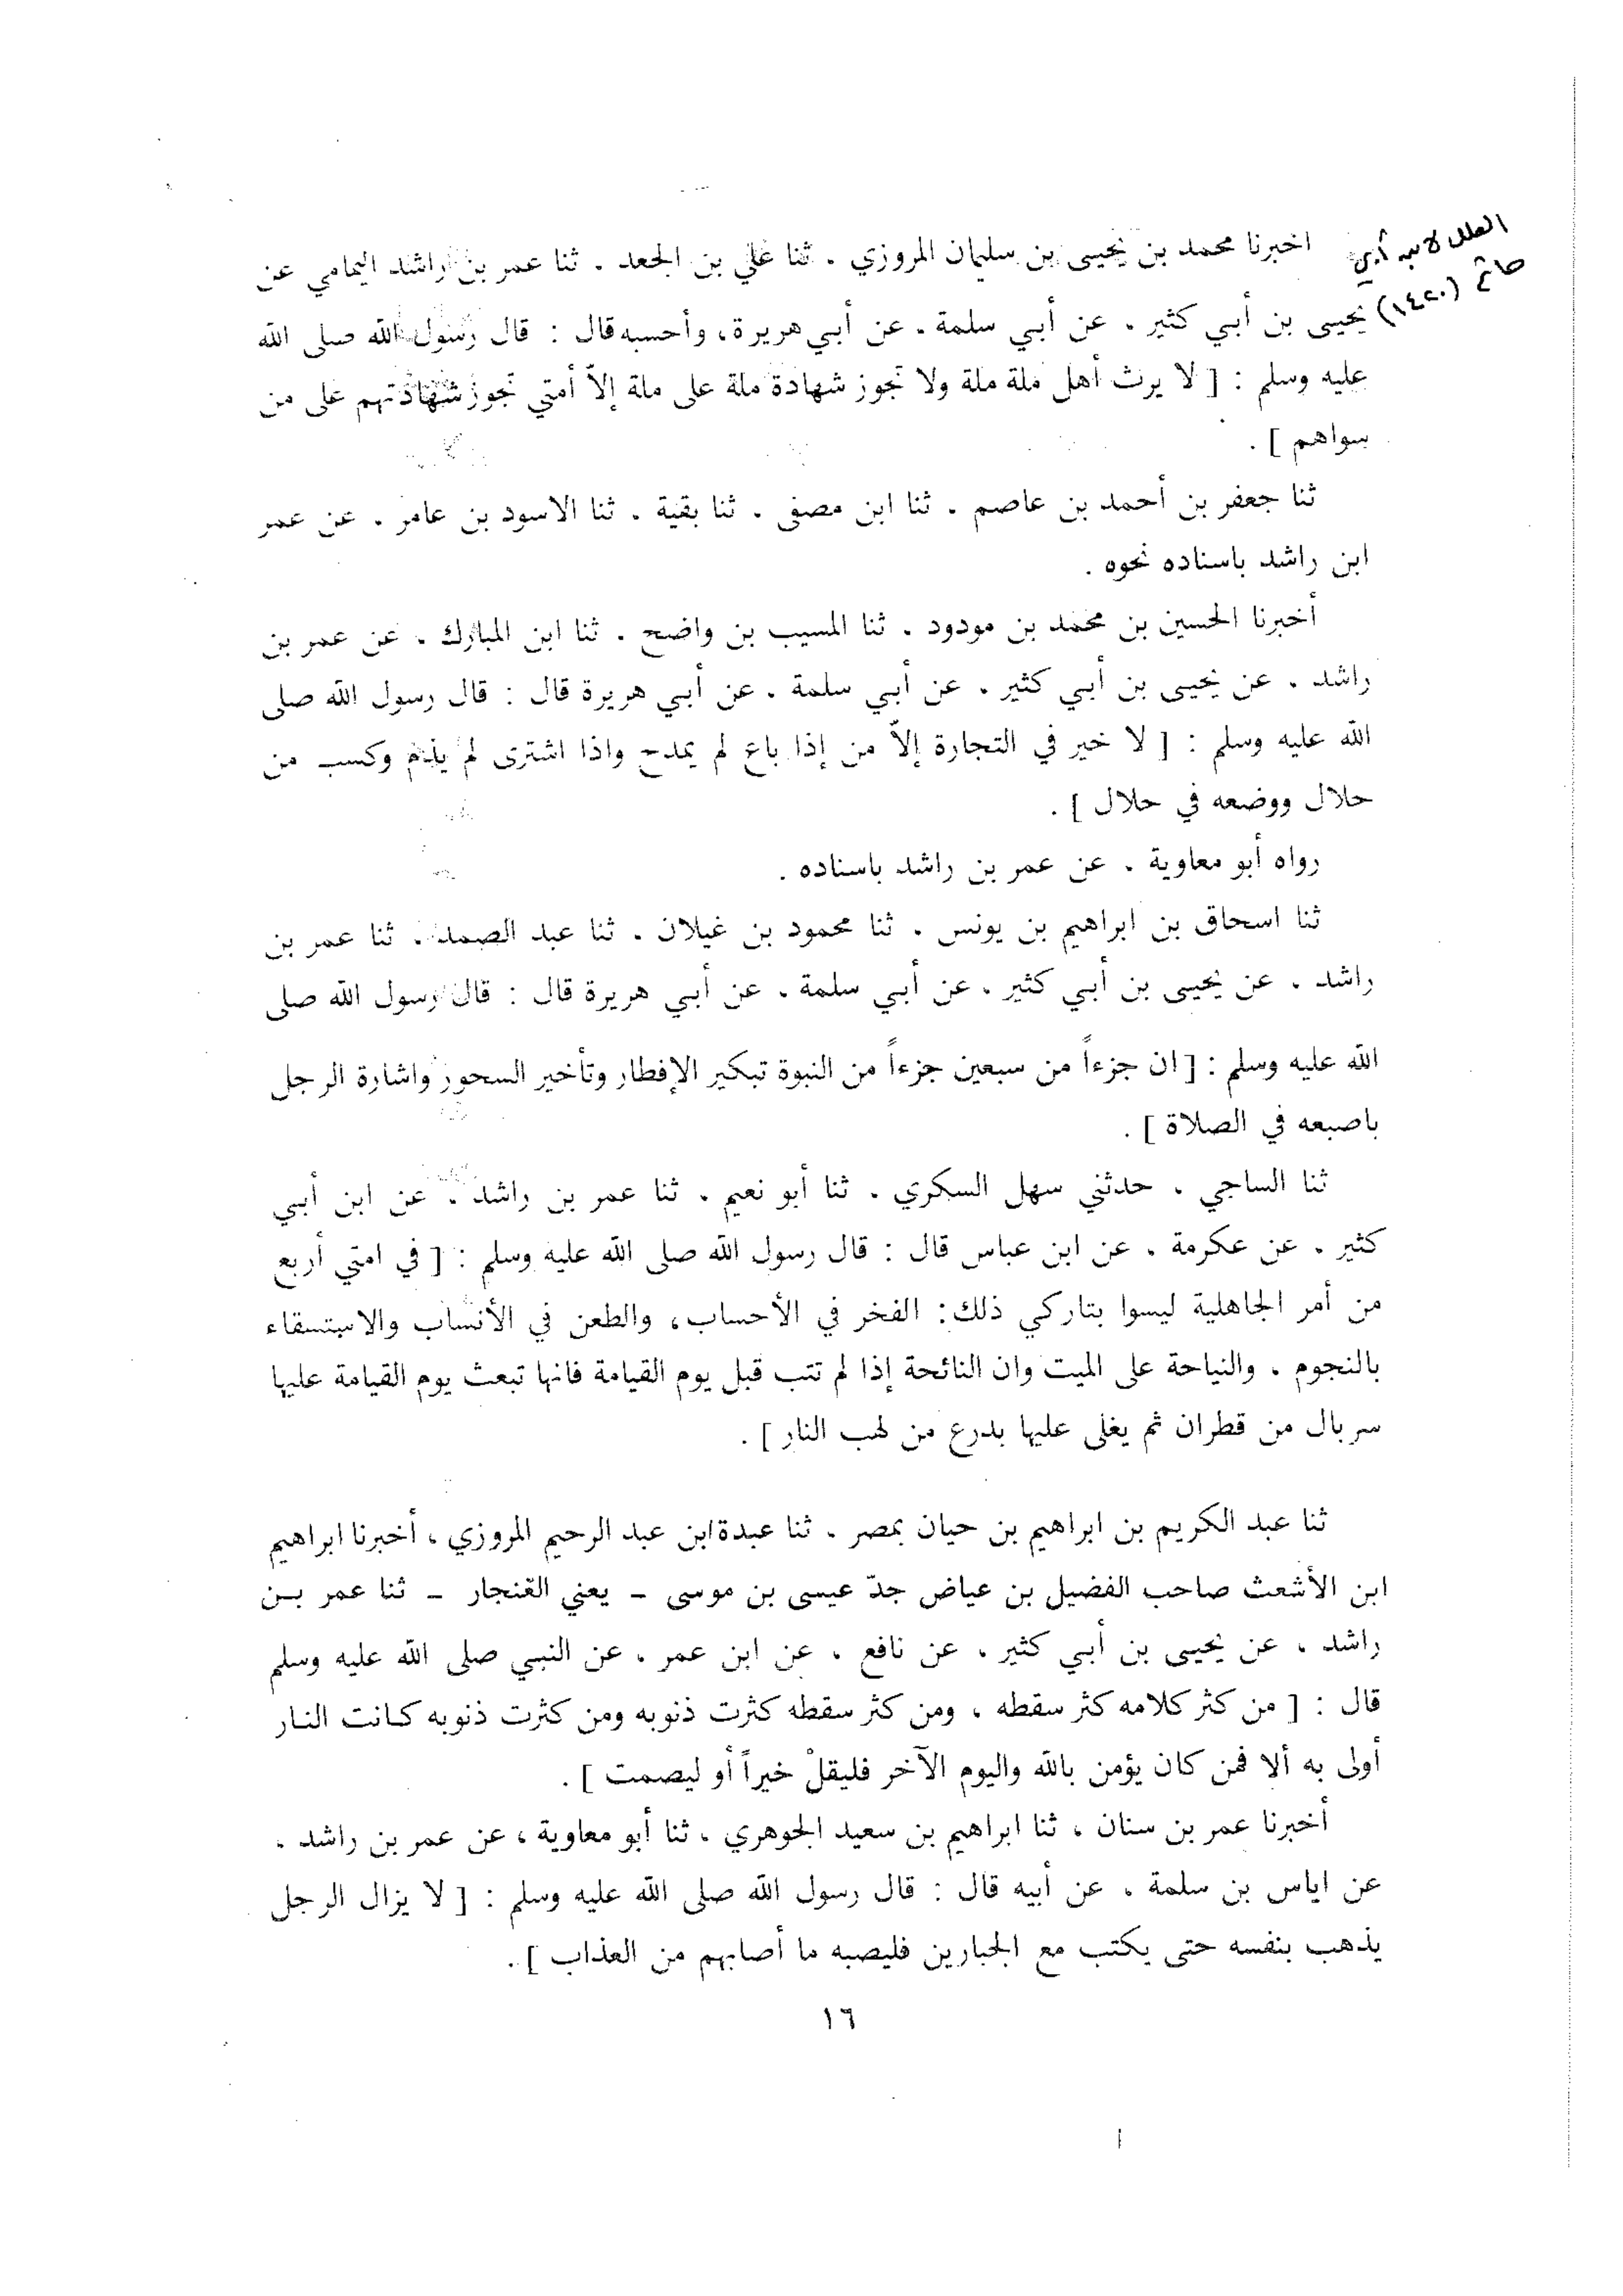 العلل لابن أبي
حاتم (١٤٢٠)
اخبرنا محمد بن يحيى بن سليمان المروزي . ثنا علي بن الجعد . ثنا عمر بن راشد اليمامي عن
يحيى بن أبي كثير . عن أبي سلمة . عن أبي هريرة، وأحسبه قال : قال رسول الله صلى الله
عليه وسلم : [ لا يرث أهل ملة ملة ولا تجوز شهادة ملة على ملة إلاّ أمتي تجوز شهادتهم على من
سواهم ] .
ثنا جعفر بن أحمد بن عاصم . ثنا ابن مصفى . ثنا بقية . ثنا الاسود بن عامر . عن عمر
ابن راشد باسناده نحوه .
أخبرنا الحسين بن محمد بن مودود . ثنا المسيب بن واضح . ثنا ابن المبارك . عن عمر بن
راشد . عن يحيى بن أبي كثير . عن أبي سلمة . عن أبي هريرة قال : قال رسول الله صلى
الله عليه وسلم : [ لا خير في التجارة إلاّ من إذا باع لم يمدح واذا اشترى لم يذم وكسب من
حلال ووضعه في حلال ] .
رواه أبو معاوية . عن عمر بن راشد باسناده .
ثنا اسحاق بن ابراهيم بن يونس . ثنا محمود بن غيلان . ثنا عبد الصمد . ثنا عمر بن
راشد . عن يحيى بن أبي كثير . عن أبي سلمة . عن أبي هريرة قال : قال رسول الله صلى
الله عليه وسلم : [ ان جزءاً من سبعين جزءاً من النبوة تبكير الإفطار وتأخير السحور واشارة الرجل
باصبعه في الصلاة ] .
ثنا الساجي . حدثني سهل السكري . ثنا أبو نعيم . ثنا عمر بن راشد . عن ابن أبي
كثير . عن عكرمة . عن ابن عباس قال : قال رسول الله صلى الله عليه وسلم : [ في امتي أربع
من أمر الجاهلية ليسوا بتاركي ذلك: الفخر في الأحساب، والطعن في الأنساب والاستسقاء
بالنجوم . والنياحة على الميت وان النائحة إذا لم تتب قبل يوم القيامة فانها تبعث يوم القيامة عليها
سربال من قطران ثم يغلى عليها بدرع من لهب النار ] .
ثنا عبد الكريم بن ابراهيم بن حيان بمصر . ثنا عبدة ابن عبد الرحيم المروزي ، أخبرنا ابراهيم
ابن الأشعث صاحب الفضيل بن عياض جدّ عيسى بن موسى – يعني الغنجار – ثنا عمر بن
راشد ، عن يحيى بن أبي كثير ، عن نافع ، عن ابن عمر ، عن النبي صلى الله عليه وسلم
قال : [ من كثر كلامه كثر سقطه ، ومن كثر سقطه كثرت ذنوبه ومن كثرت ذنوبه كانت النار
أولى به ألا فمن كان يؤمن بالله واليوم الآخر فليقلْ خيراً أو ليصمت ] .
أخبرنا عمر بن سنان ، ثنا ابراهيم بن سعيد الجوهري ، ثنا أبو معاوية ، عن عمر بن راشد .
عن اياس بن سلمة . عن أبيه قال : قال رسول الله صلى الله عليه وسلم : [ لا يزال الرجل
يذهب بنفسه حتى يكتب مع الجبارين فليصبه ما أصابهم من العذاب ] .
١٦